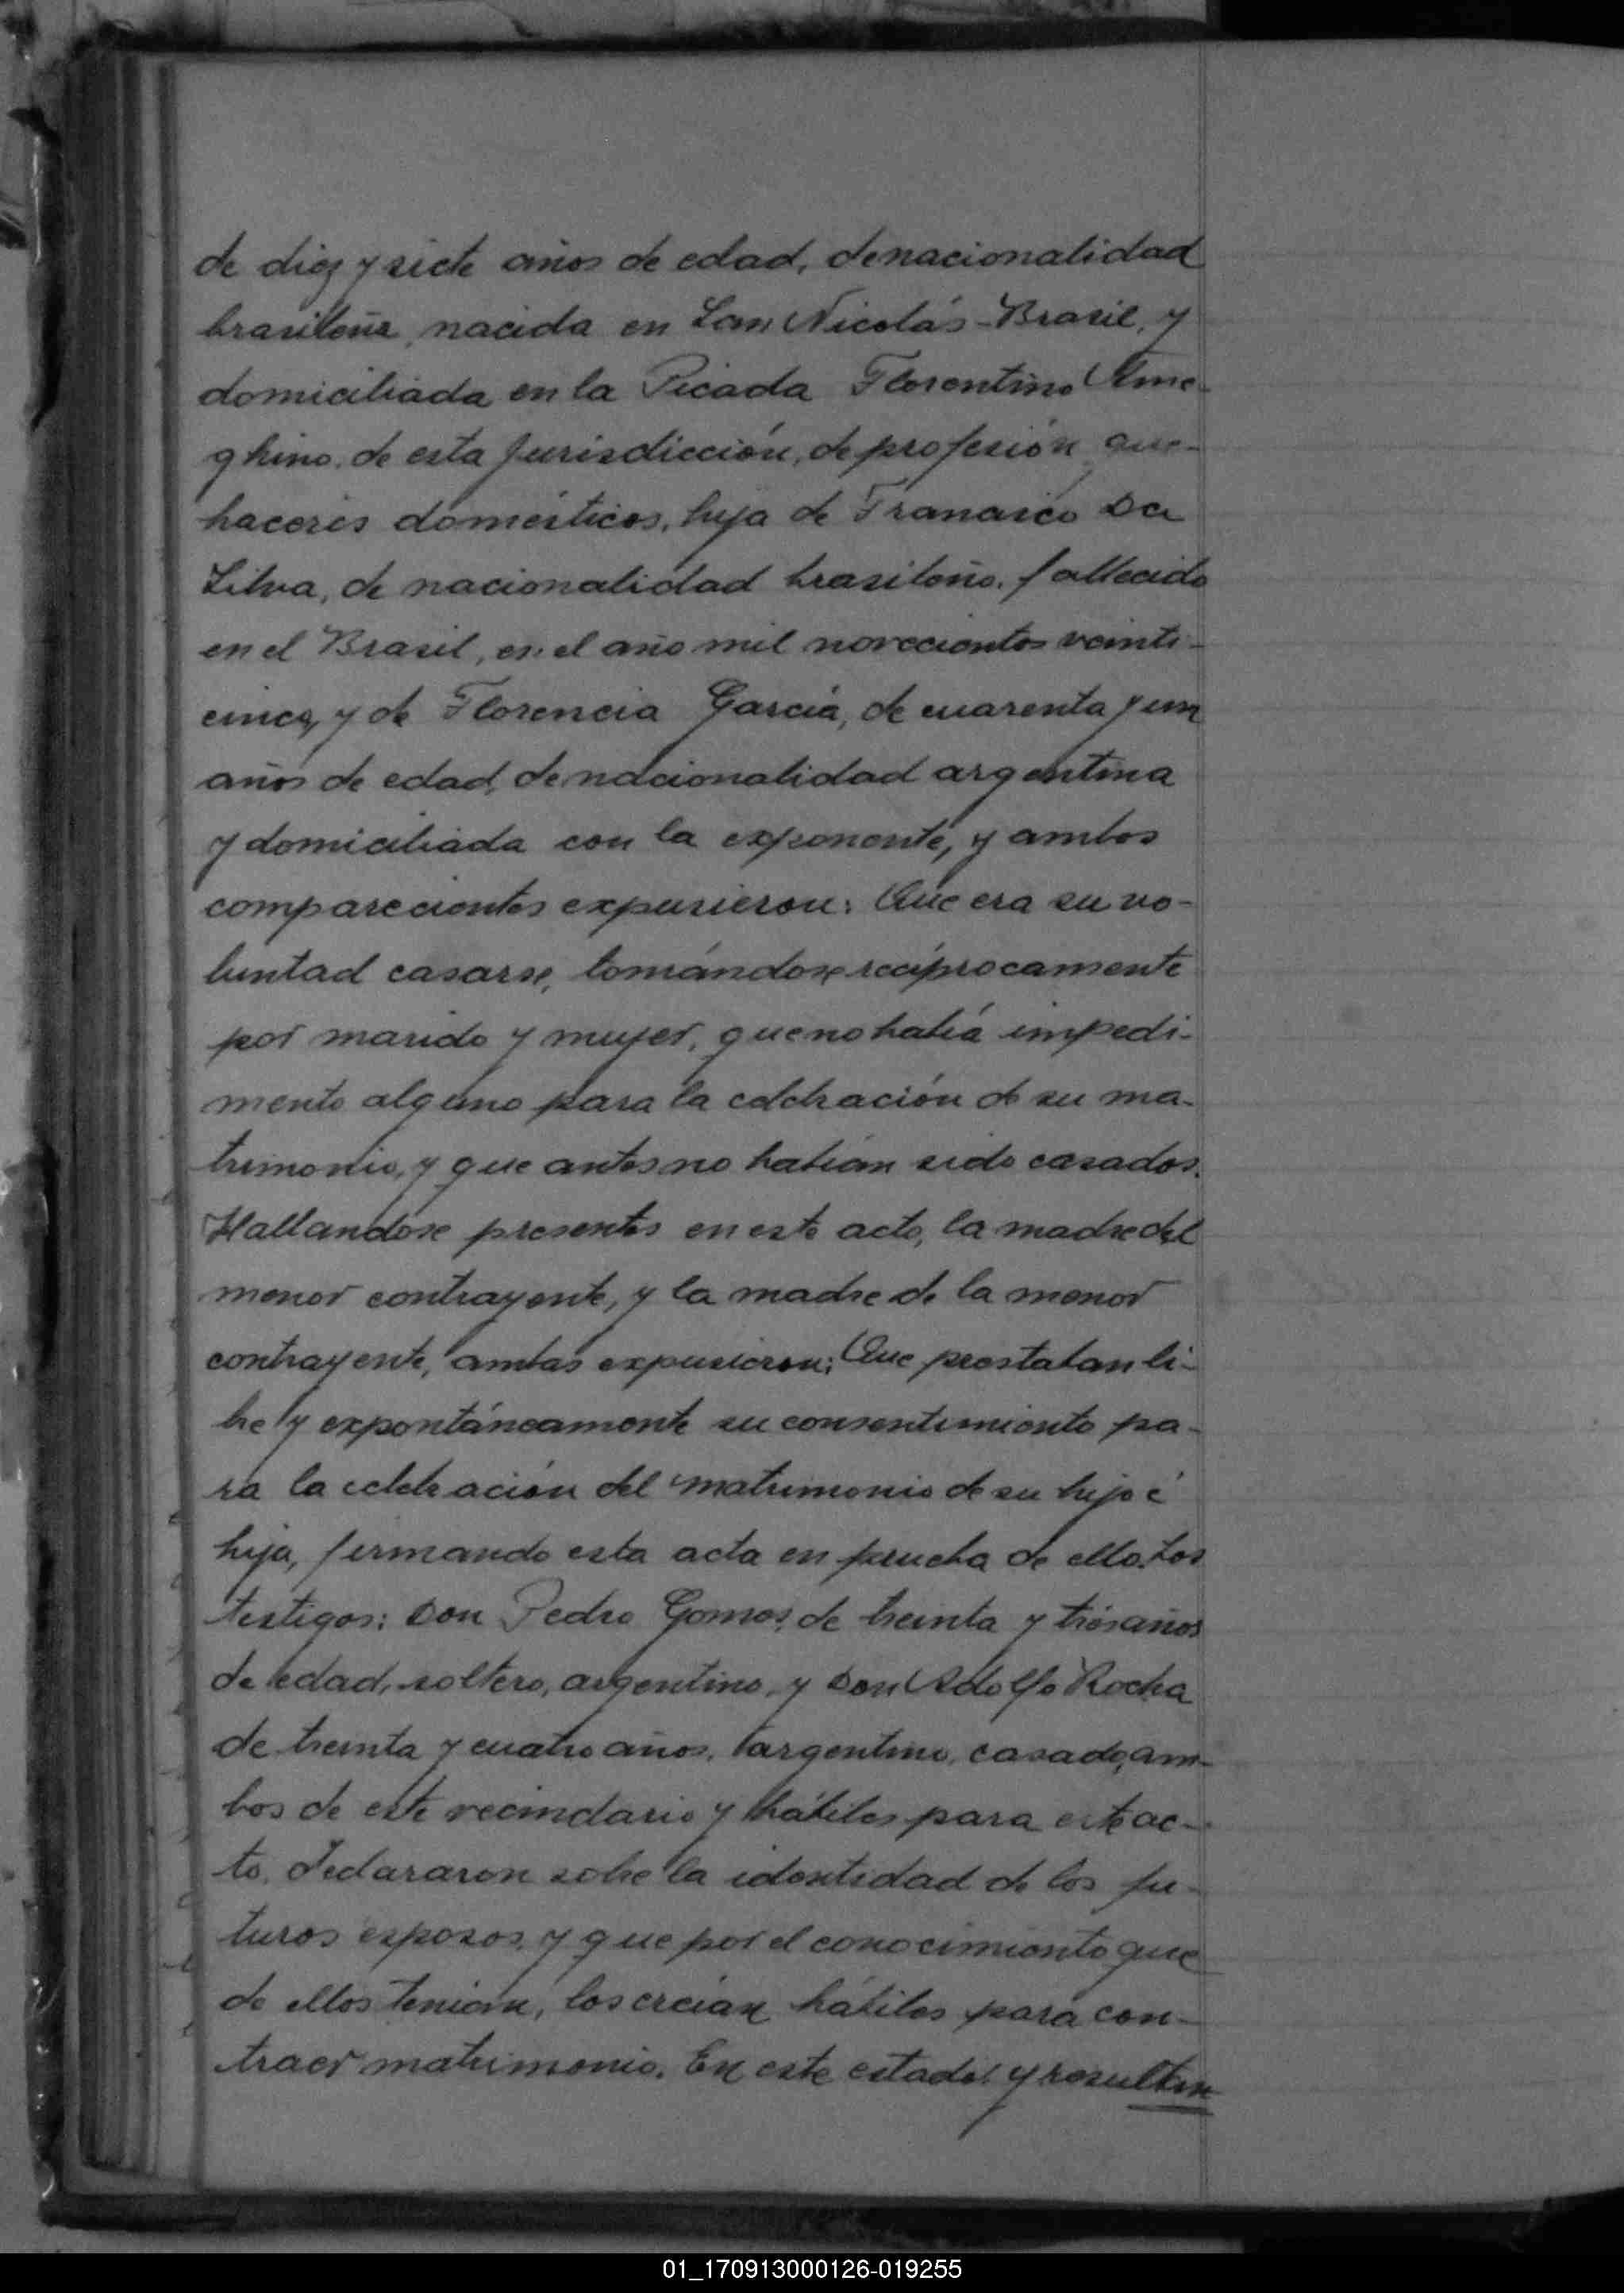 de diez y siete años de edad, de nacionalidad
brasileña, nacida en San Nicolás-Brasil, y
domiciliada en la Picada Florentino Ame-
ghino, de esta Jurisdicción, de profesión que-
haceres domésticos, hija de Francisco Da
Silva, de nacionalidad brasileño, fallecido
en el Brasil, en el año mil novecientos veinti-
cinco, y de Florencia García, de cuarenta y un
años de edad, de nacionalidad argentina
y domiciliada con la exponente, y ambos
comparecientes expusieron: Que era su vo-
luntad casarse, tomándose recíprocamente
por marido y mujer, que no había impedi-
mento alguno para la celebración de su ma-
trimonio, y que antes no habían sido casados.
Hallandose presentes en este acto, la madre del
menor contrayente, y la madre de la menor
contrayente, ambas expusieron: Que prestaban li-
bre y expontáneamente su consentimiento pa-
ra la celebración del matrimonio de su hijo é
hija, firmando esta acta en prueba de ello. Los
testigos: Don Pedro Gomes, de treinta y tres años
de edad, soltero, argentino, y Don Adolfo Rocha
de treinta y cuatro años, argentino, casado, am-
bos de este vecindario y hábiles para este ac-
to, Declararon sobre la identidad de los fu-
turos esposos, y que por el conocimiento que
de ellos tenían, los creían hábiles para con-
traer matrimonio. En este estado y resultan
01_170913000126-019255